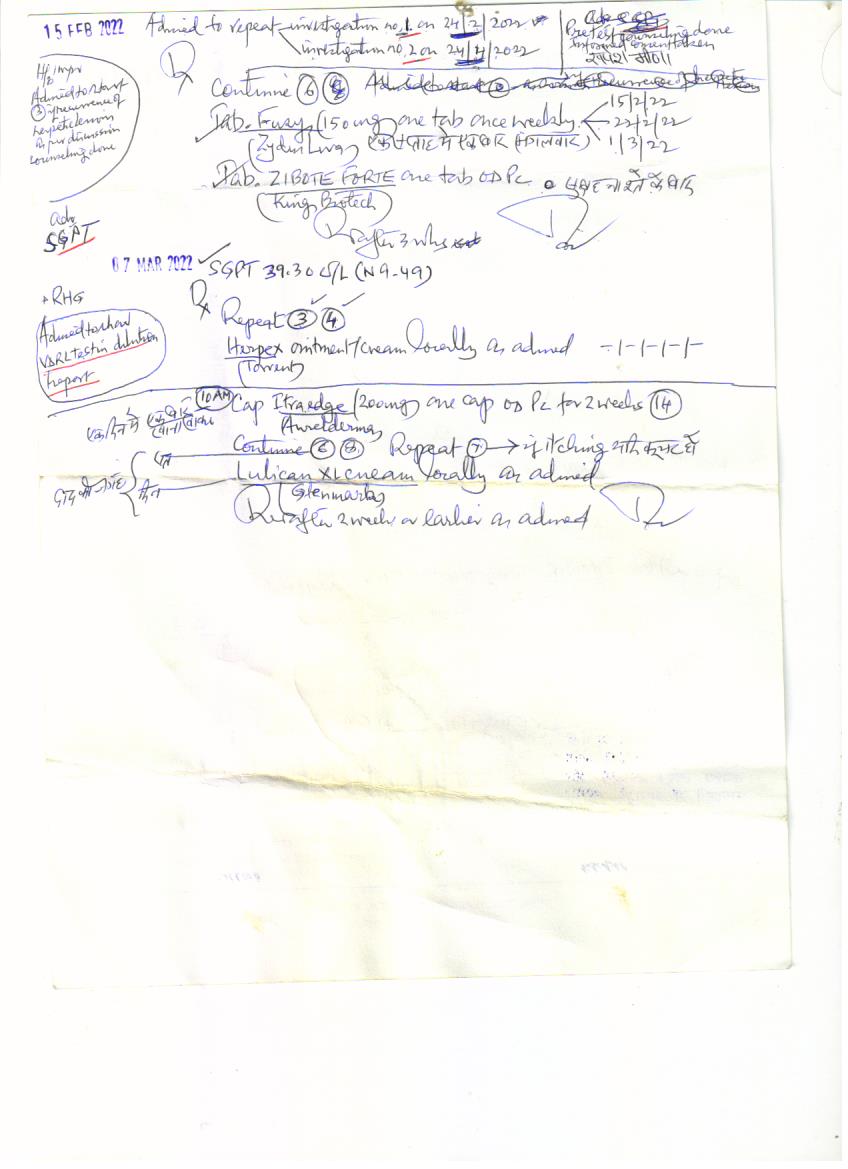 15 FEB 2022
Advised to repeat investigation no. 1. on 24/2/2022
investigation no. 2 on 24/4/2022
Pretest counseling done
Informed consent taken
H/o impr
Advised to start
③ if recurrence of
herpetic lesion
as per discussion
counseling done
Rx
Continue ⑥ ⑧
Tab. Fusy (150mg) one tab once weekly. 15/2/22
22/2/22
1/3/22
(Zydus Liva) एक सप्ताह में एक बार (मंगलवार)
Tab. ZIBOTE FORTE one tab OD PC सुबह नाश्ते के बाद
(King Biotech)
Adv
SGPT
R after 3 wks
07 MAR 2022 SGPT 39.30 U/L (N 9-49)
+ RHG
Rx
Repeat ③ ④
Advised to show
VDRL test in dilution
report
Herpex ointment/cream locally as advised -|-|-|-|-
(Torrent)
10AM Cap Itraedge (200mg) one cap OD PC for 2 weeks ⑭
एक दिन में एक बार
Continue ⑥ ⑧ Repeat ⑦ → if itching
Lulican XL cream locally as advised
(Glenmark)
R after 2 weeks or earlier as advised